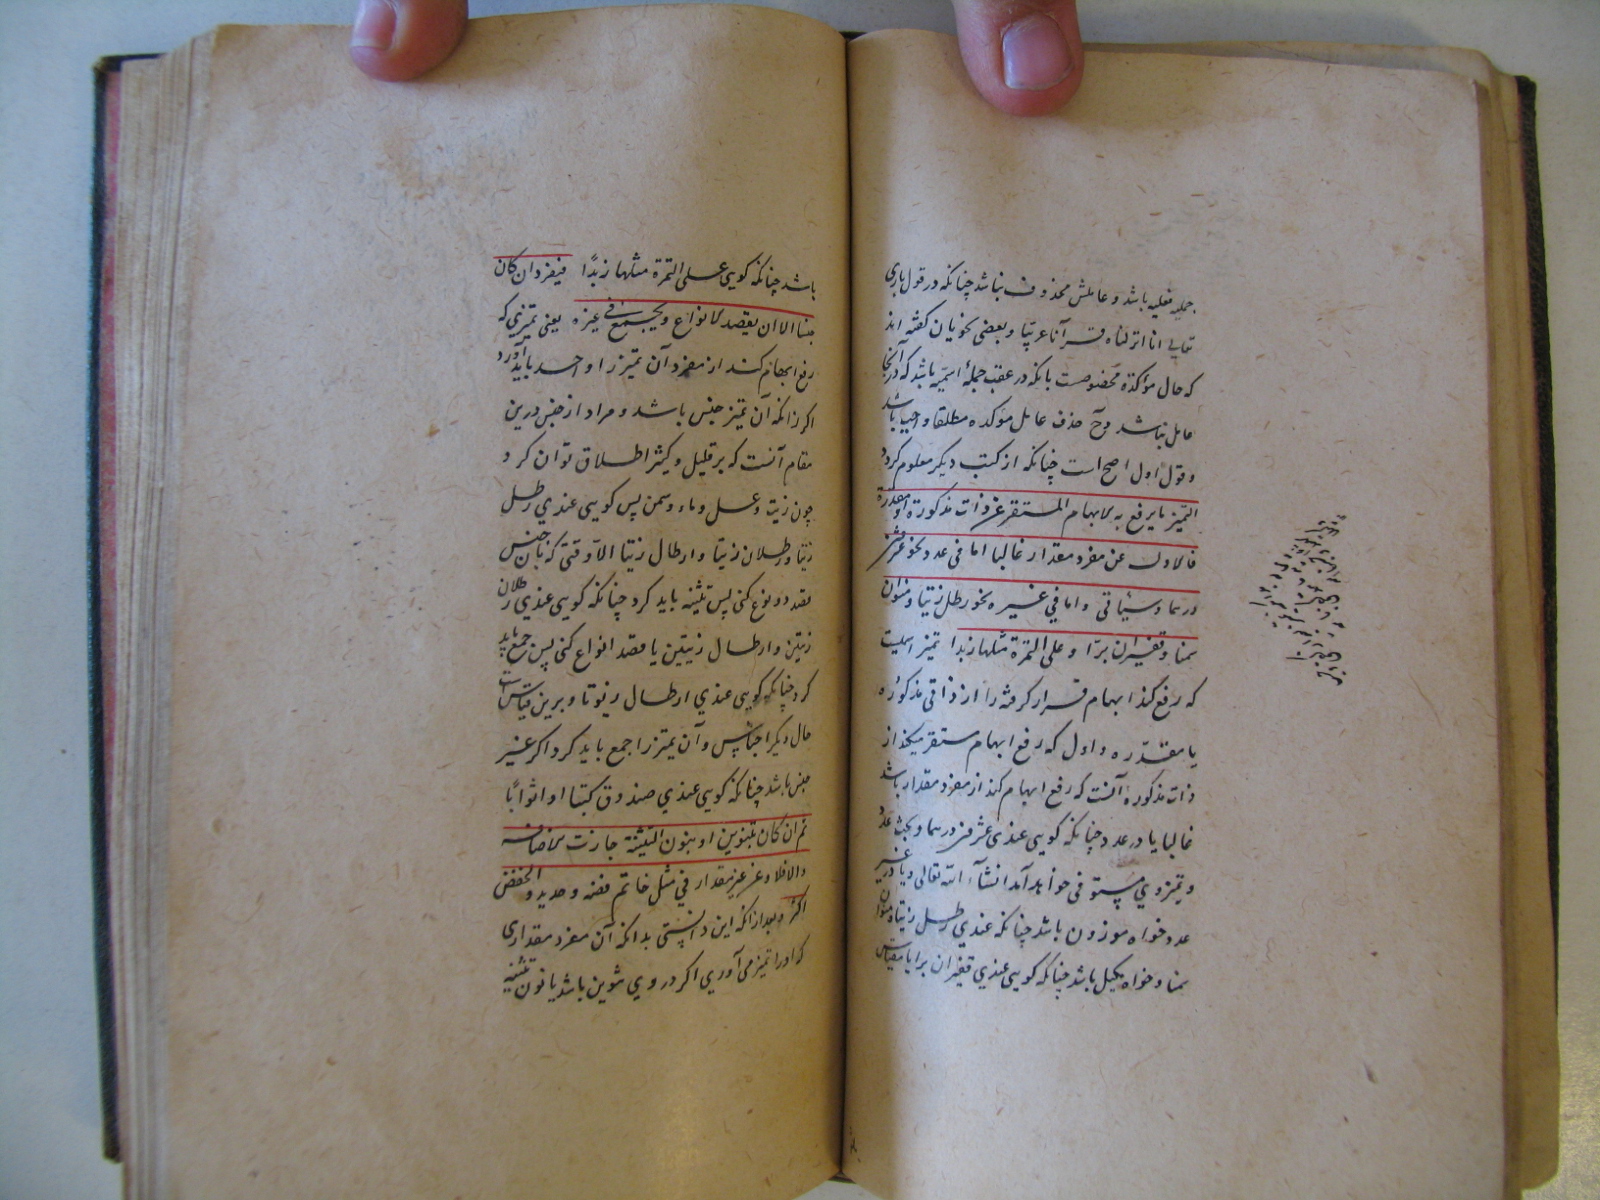 جمله فعلیه باشد و عاملش محذوف نباشد چنانکه در قول باری
تعالی انا انزلناه قرآنا عربیا و بعضی نحویان گفته اند
که حال مؤکده مخصوصست بانکه در عقب جملهٔ اسمیه باشد که در آنجا
عامل نباشد وح حذف عامل مؤکده مطلقا واجب باشد
و قول اول اصح است چنانکه از کتب دیگر معلوم کردد
التمیز ما یرفع به الابهام المستقر عن ذات مذکورة او مقدرة
فالاول عن مفرد مقدار غالبا اما فی عدد نحو عشرون
درهما وسیاتی واما فی غیره نحو رطل زیتا ومنوان
سمنا وقفیزان برّا وعلی التمرة مثلها زبدا تمیز اسمیست
که رفع کند ابهام قرار کرفته را از ذاتی مذکوره
یا مقدّره و اول که رفع ابهام مستقر میکند از
ذات مذکوره آنست که رفع ابهام کند از مفرد مقدار باشد
غالبا یا در عدد چنانکه کویی عندی عشرون درهما و بحث عدد
و تمیز وی مستوفی خواهد آمد انشاء الله تعالی و یا در غیر
عدد خواه موزون باشد چنانکه عندی رطل زیتا و منوان
سمنا و خواه مکیل باشد چنانکه کویی عندی قفیزان برا یا مقیاس
باشد چنانکه کویی علی التمرة مثلها زبدًا فیفرد ان کان
جنسا الا ان یقصد الانواع ویجمع فی غیره یعنی تمیزی که
رفع ابهام کند از مفرد آن تمیز را واحد باید آورد
اکر زانکه آن تمیز جنس باشد و مراد از جنس درین
مقام آنست که بر قلیل و کثیر اطلاق توان کرد
چون زیت وعسل وماء وسمن پس کویی عندی رطل
زیتا ورطلان زیتا وارطال زیتا الّا وقتی که بآن جنس
قصد دو نوع کنی پس تثنیه باید کرد چنانکه کویی عندی رطلان
زیتین وارطال زیتین یا قصد انواع کنی پس جمع باید
کرد چنانکه کویی عندی ارطال زیوتا و برین قیاسست
حال دیکر اجناس و آن تمیز را جمع باید کرد اکر غیر
جنس باشد چنانکه کویی عندی صندوق کتبا او اثوابًا
ثم ان کان بتنوین او بنون التثنیة جازت الاضافة
والا فلا وعن غیر مقدار فی مثل خاتم فضة وحدید والخفض
اکثر و بعد از انکه این دانستی بدانکه آن مفرد مقداری
که او را تمیز می آوری اکر در وی تنوین باشد یا نون تثنیه